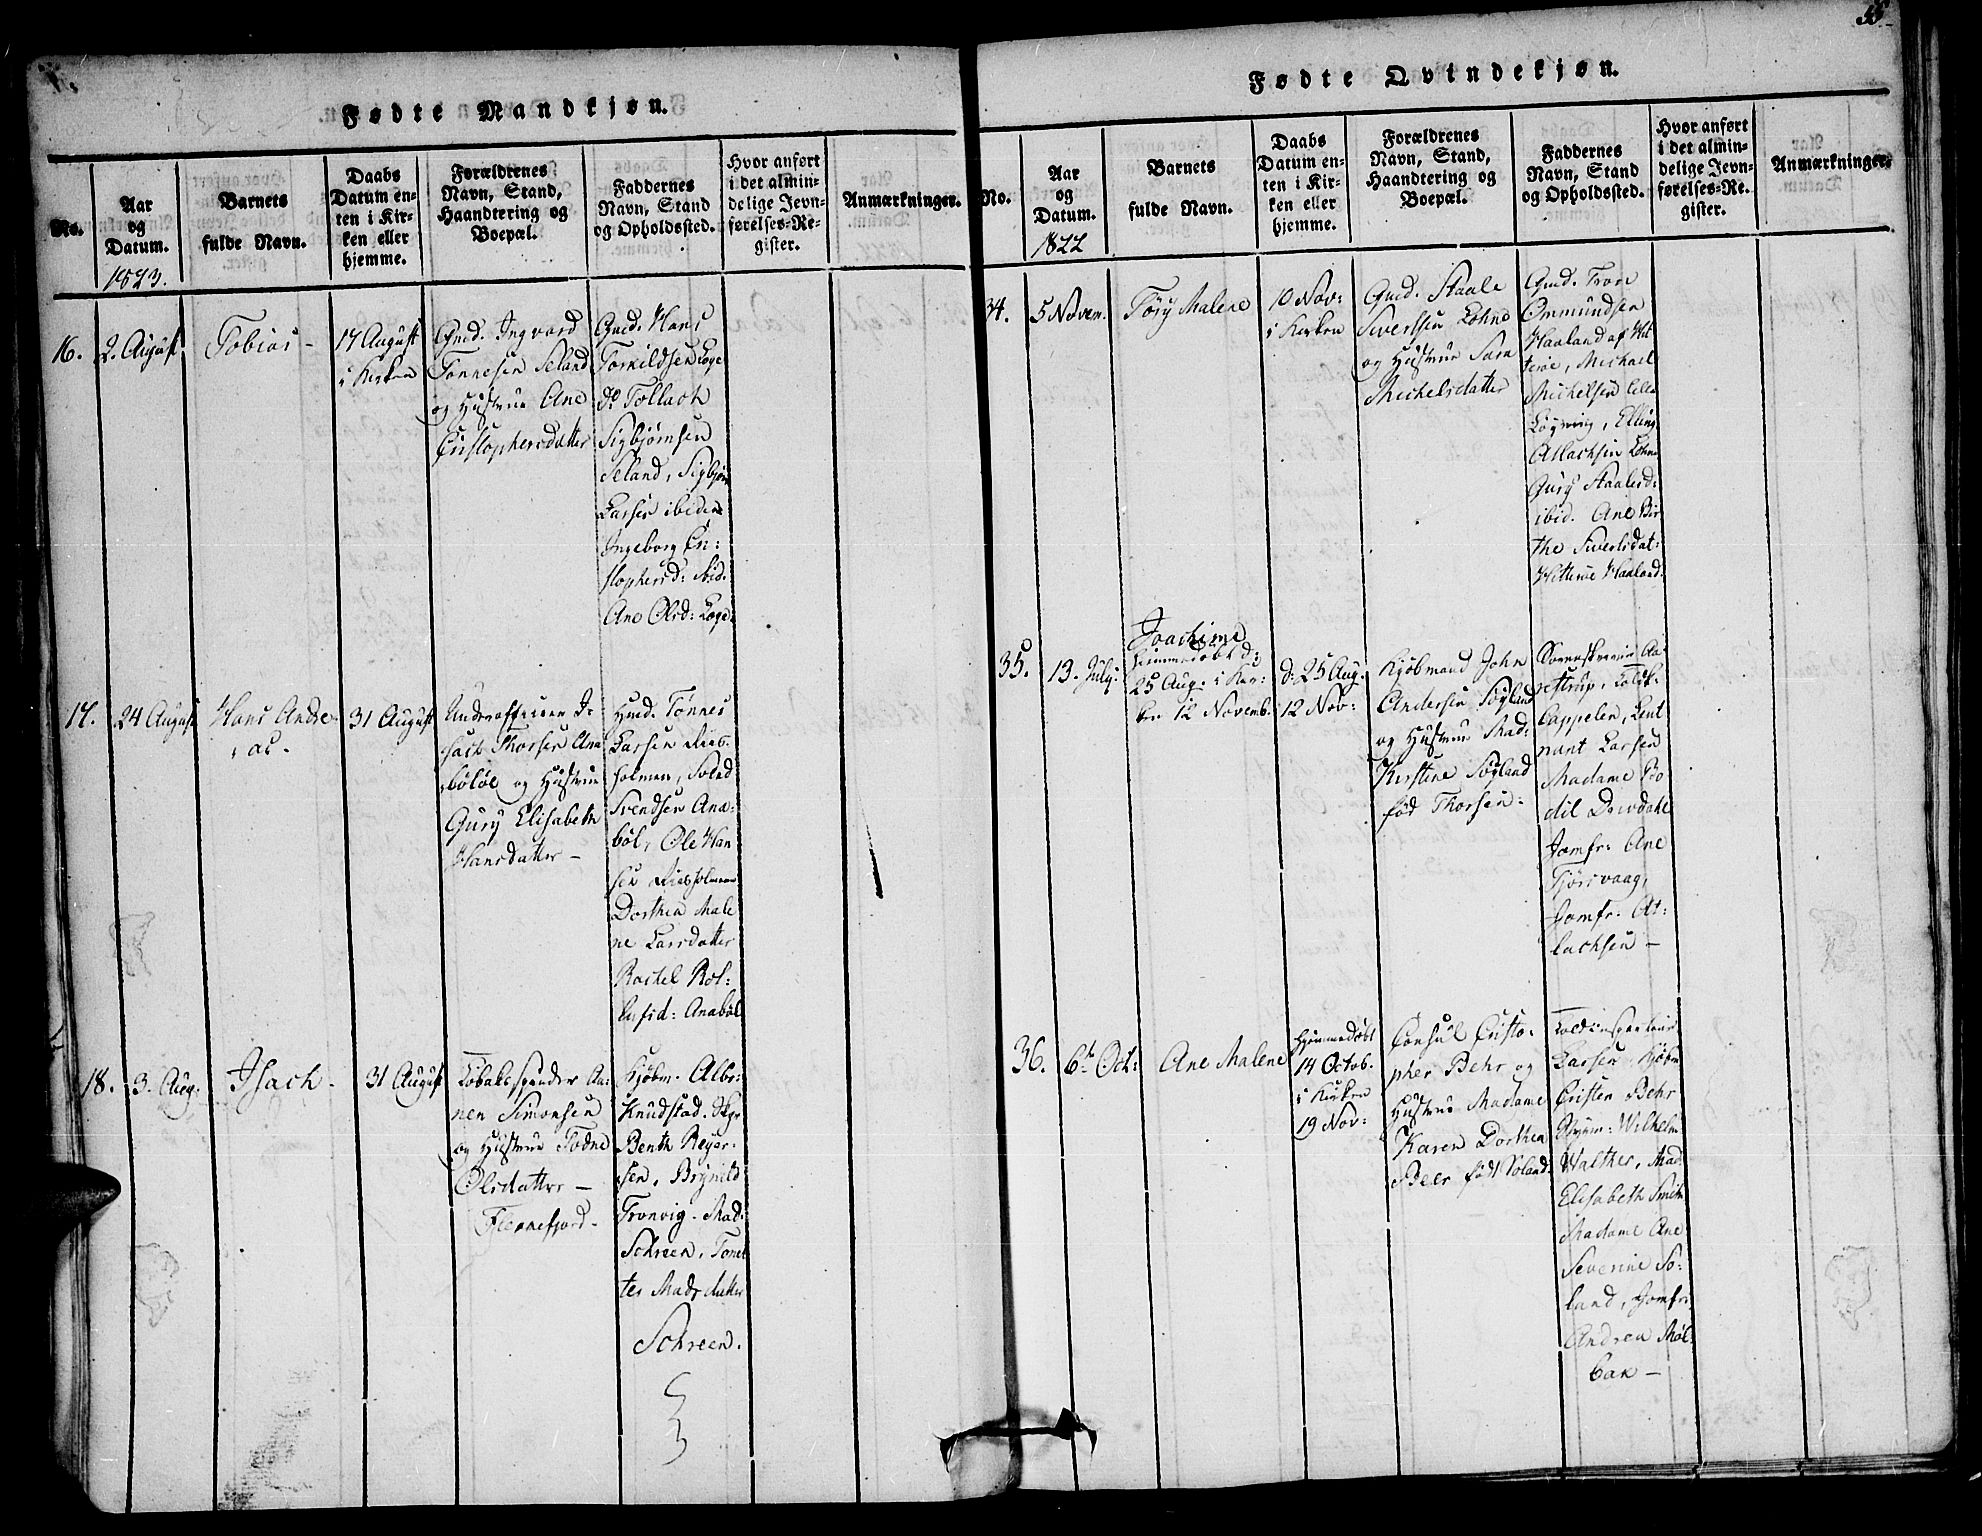 Fødte Mandkjøn.
No.
Aar
og
Datum.
1823.
Barnets
fulde Navn.
Daabs
Datum en-
ten i Kir-
ken eller
hjemme.
Forældrenes
Navn, Stand,
Haandtering og
Boepæl.
Faddernes
Navn, Stand
og Opholdssted.
Hvor anført
i det almin-
delige Jevn-
førelses-Re-
gister.
Anmærkninger.
16.
2. August
Tobias -
17 August
i Kirken
Gmd. Ingvard
Tønnesen Seland
og Hustrue Ane
Cristophersdatter
Gmd. Hans
Torkildsen Loge
do Tollach
Sigbjørnsen
Seland, Sigbjørn
Larsen ibidem
Ingeborg Cri:
stophersd: ibid.
Ane Olsd: Loge:
17.
24 August
Hans Andre-
as -
31 August
Underofficeer I-
sach Thorsen Ana
bøløe og Hustrue
Gury Elisabeth
Hansdatter -
Hmd. Tønnes
Larsen
holmen, Svend
Svendsen Ana:
bøl, Ole Han
sen
Dorthea Male
ne Larsdatter
Rachel Rol:
lufsd: Anabøl
18.
3. Aug:
Isach -
31 August
Tobakspinder Aa-
nen Simonsen
og Hustrue Todne
Olsdatter -
Flekkefjord -
Kjøbm. Albr:
Knudstad. Skpr
Benth Reyer-
sen, Brynild
Tronvig - Mad:
Schreen, Tonet
tes Madsdatter
Schreen.
55
Fødte Qvindekjøn.
No.
Aar
og
Datum.
1822
Barnets
fulde Navn.
Daabs
Datum en-
ten i Kir-
ken eller
hjemme.
Forældrenes
Navn, Stand,
Haandtering og
Boepæl.
Faddernes
Navn, Stand
og Opholdssted.
Hvor anført
i det almin-
delige Jevn-
førelses-Re-
gister.
Anmærkninger.
34.
5 Novem.
Tøry Malene
10 Nov:
i Kirken
Gmd. Staale
Sivertsen Lohne
og Hustrue Sara
Michelsdatter
Gmd. Tron
Ommundsen
Haaland af Hit
terøe, Michael
Michelsen
Løgning, Elling
Atlachsen Lohne
Gury Staalesd:
ibid. Ane Bir
the Sivertsdat:
Hitterøe Haaland:
35.
13. July:
Joachime
hjemmedøbt d:
25 Aug. i Kir:
ken 12 Novemb.
d: 25 Aug.
12 Nov:
Kjøbmand John
Andersen Søyland
og Hustrue Mad:
Kirstine Søyland
fød Thorsen:
Sorenskriver Aa-
restrup, Toldk.
Cappelen, Leut
nant Larsen
Madame Bo
dil Drivdahl
Jomfr: Ane
Tjørsvaag,
Jomfr: At:
lachsen -
36.
6te Oct:
Ane Malene
Hjemmedøbt
14 Octob.
i Kirken
19 Nov:
Consul Cristo-
pher Behr og
Hustrue Madame
Karen Dorthea
Beer født Søland.
Toldinspecteur
Larsen, Kjøbm
Cristen Behr
Wilhelm
Walther, Mad.
Elisabeth Smith
Madame Ane
Severine So-
land, Jomfr:
Andrea Møl
bak -